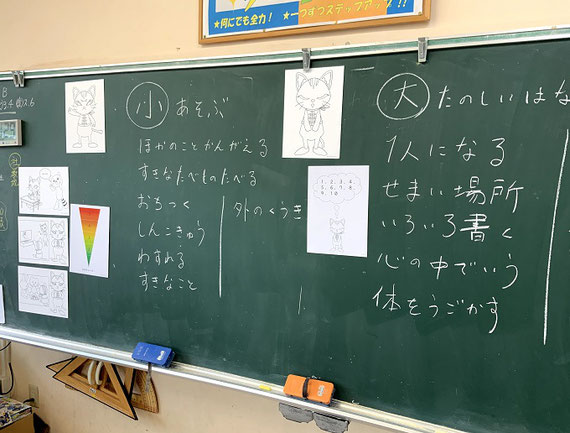 ★何にでも全力! ★一つずつステップアップ!!
小 あそぶ
ほかのことかんがえる
すきなたべものたべる
おちつく
しんこきゅう
わすれる
すきなこと
外のくうき
1, 2, 3, 4,
5, 6, 7, 8,
9, 10
大 たのしいはな
1人になる
せまい場所
いろいろ書く
心の中でいう
体をうごかす